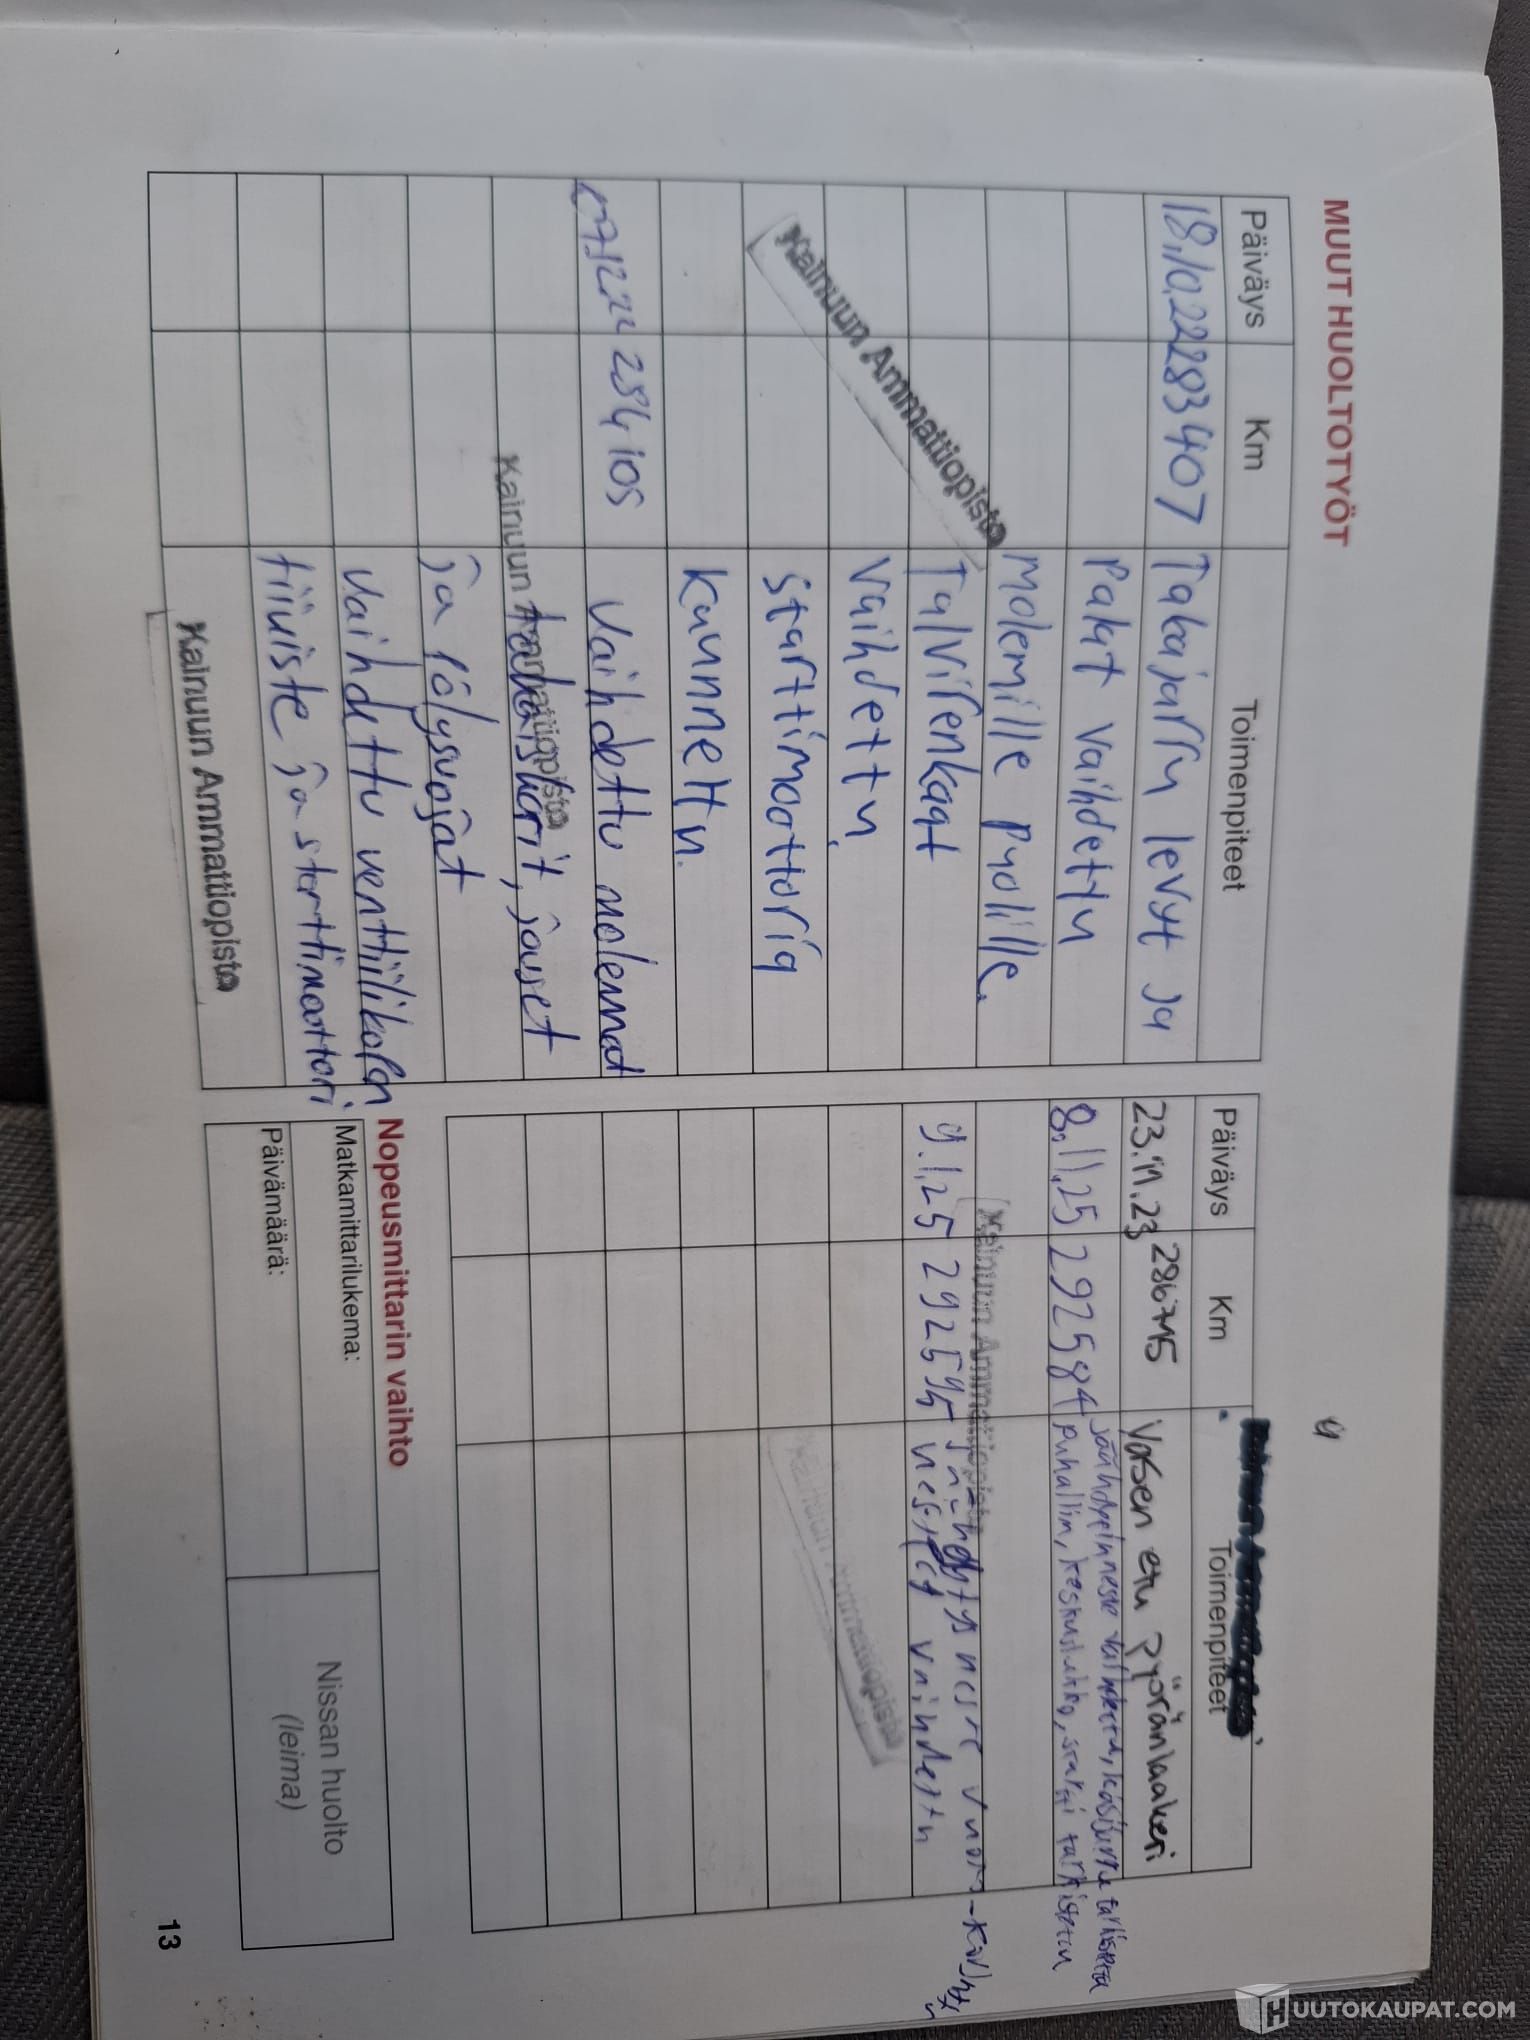 MUUT HUOLTOTYÖT
Päiväys Km Toimenpiteet
18.10.22 283407 Takajarru levyt ja
Palat vaihdettu
Molemille puolille.
Talvirenkaat
vaihdettu,
starttimoottoria
kuunneltu.
07.12.22 284105 Vaihdettu molemmat
takaiskarit, jouset
ja tölysuojat
vaihdettu venttiilikopan
tiiviste ja starttimoottori
Kainuun Ammattiopisto
Kainuun Ammattiopisto
Kainuun Ammattiopisto
Päiväys Km Toimenpiteet
23.11.23 286715 Vasen etu pyöränlaakeri
jäähdytinneste vaihdettu, käsijarru tarkistettu
8.11.25 292584 puhallin, keskuslukko, startti tarkistettu
Kainuun Ammattiopisto
jäähdytysneste vuoto korjattu
9.1.25 292595 nesteet vaihdettu
Kainuun Ammattiopisto
Nopeusmittarin vaihto
Matkamittarilukema:
Päivämäärä:
Nissan huolto
(leima)
13
HUUTOKAUPAT.COM